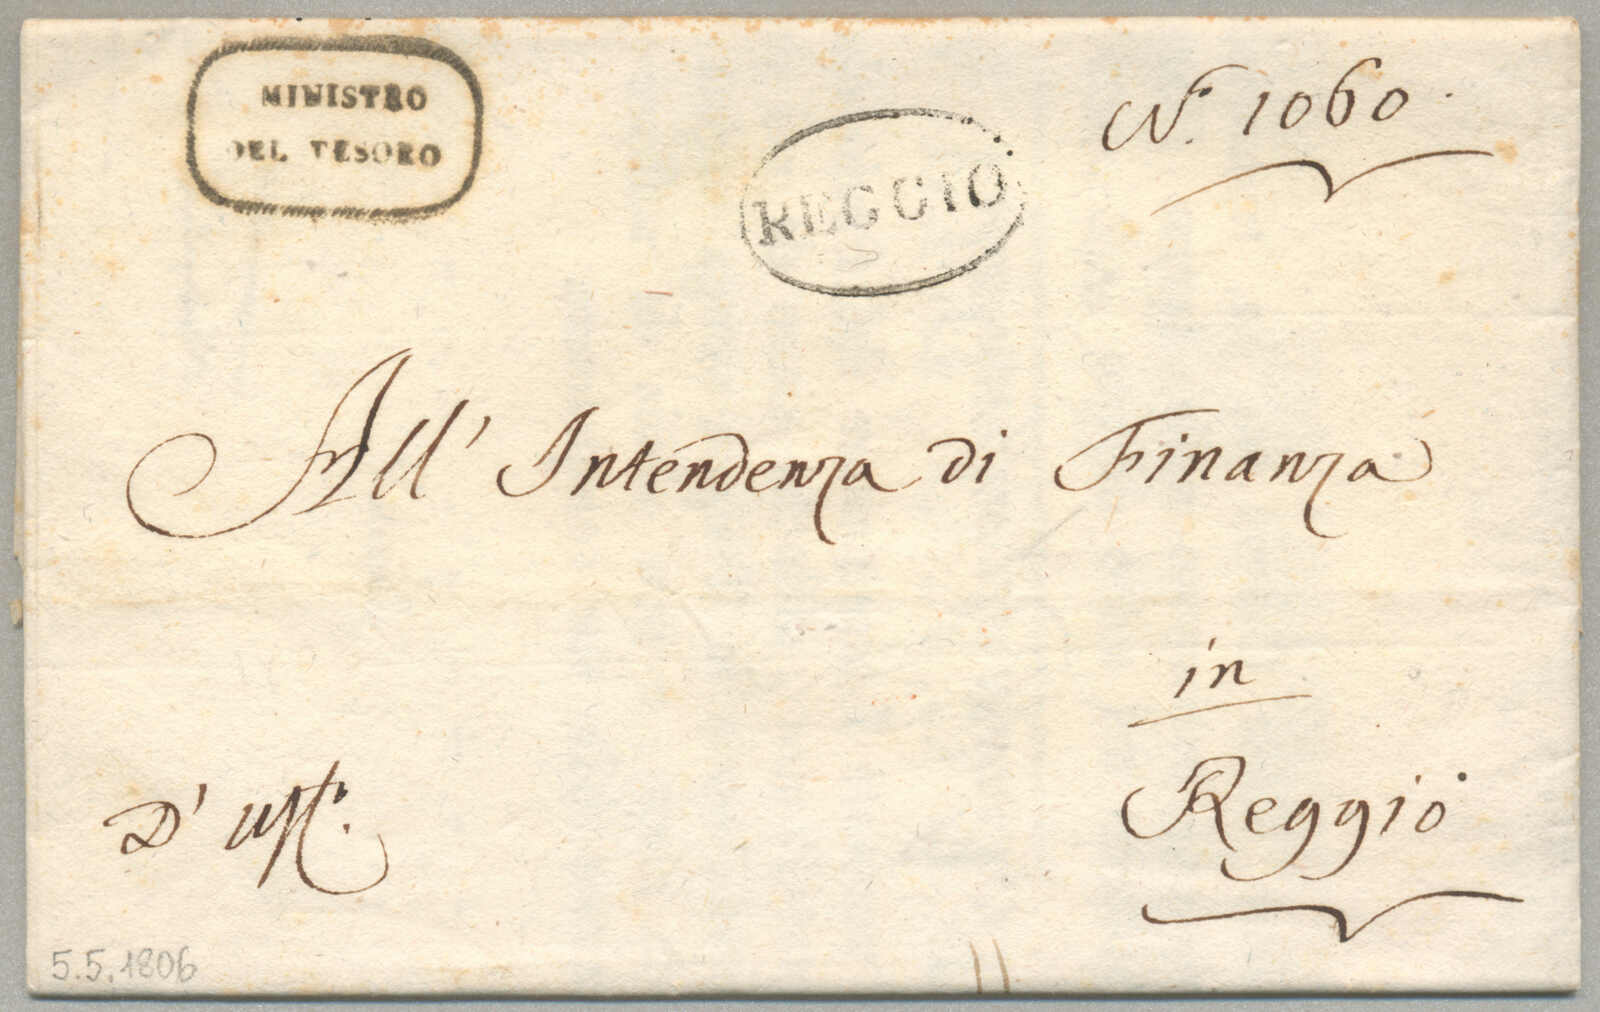 MINISTRO
DEL TESORO
REGGIO
N.º 1060.
All' Intendenza di Finanza
in
Reggio
D' Uff.º
5.5.1806